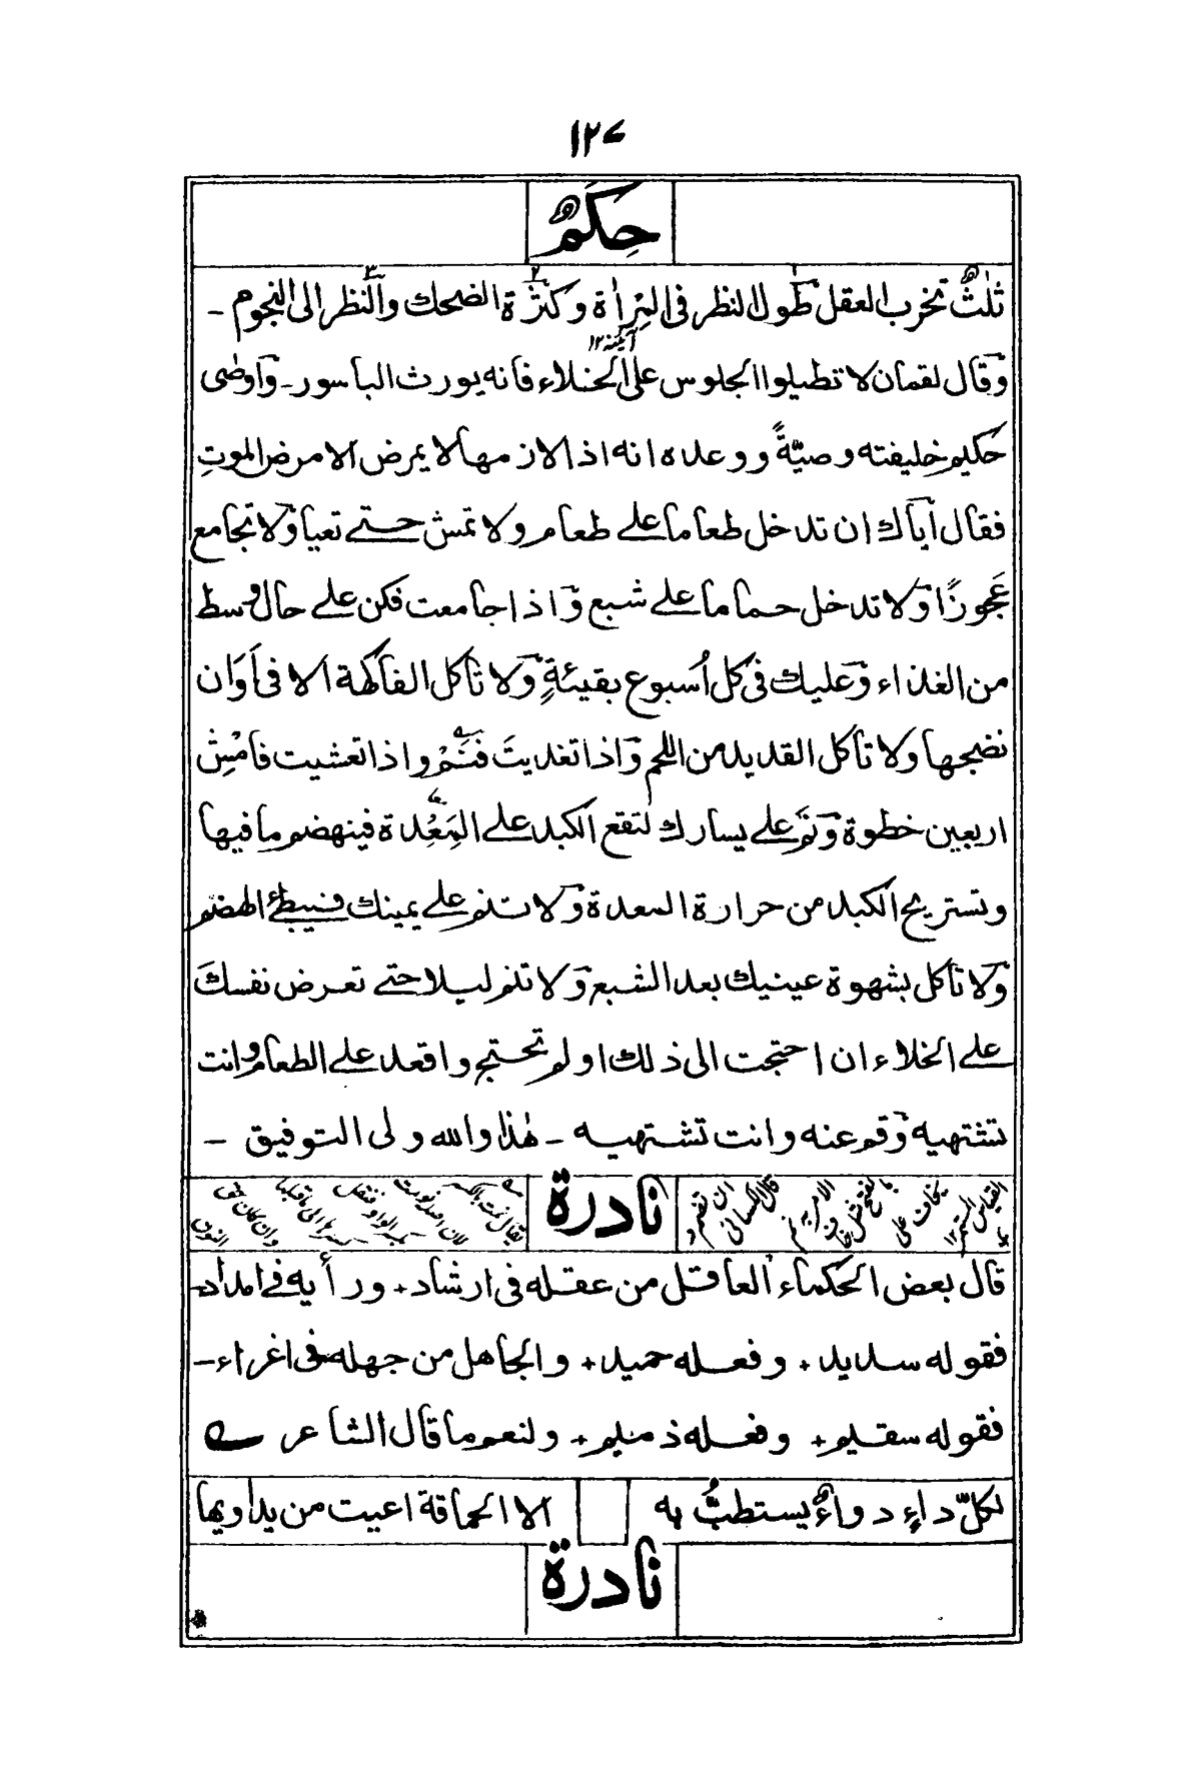 ١٢٧
حِكَمٌ
ثلٰثٌ تخرب العقل طول النظر فى المِرْاٰة و كثرة الضحك والنظر الى النجوم -
آئينه ١٢
وقال لقمان لا تطيلوا الجلوس على الخلاء فانه يورث الباسور - واوصٰى
حكيم خليفته وصيّةً ووعده انه اذا لازمها لا يمرض الا مرض الموتِ
فقال اياك ان تدخل طعاما على طعام ولا تمش حتى تعيا ولا تجامع
عَجوزًا ولا تدخل حماما على شبع واذا جامعت فكن على حال وسط
من الغذاء وعليك فى كل اُسبوع بقيئةٍ ولا تأكل الفاكهة الا فى اَوَان
نضجها ولا تأكل القديد من اللحم واذا تغديتَ فنَمْ واذا تعشيت فامْشِ
اربعين خطوة ونم على يسارك لتقع الكبد على المِعْدة فينهضم ما فيها
وتستريح الكبد من حرارة المعدة ولا تنم على يمينك فيبطئ الهضم
ولا تأكل بشهوة عينيك بعد الشبع ولا تنم ليلا حتى تعرض نفسكَ
على الخلاء ان احتجت الى ذلك او لم تحتج واقعد على الطعام وانت
تشتهيه وقم عنه وانت تشتهيه - هٰذا والله ولى التوفيق -
نادرة
قال بعض الحكماء العاقل من عقله فى ارشاد + ورأيه فى امداد -
فقوله سديد + وفعله حميد + والجاهل من جهله فى اغراء -
فقوله سقيم + وفعله ذميم + ولنعم ما قال الشاعر
لكلّ داءٍ دواءٌ يستطبُّ به الا الحماقة اعيت من يداويها
نادرة